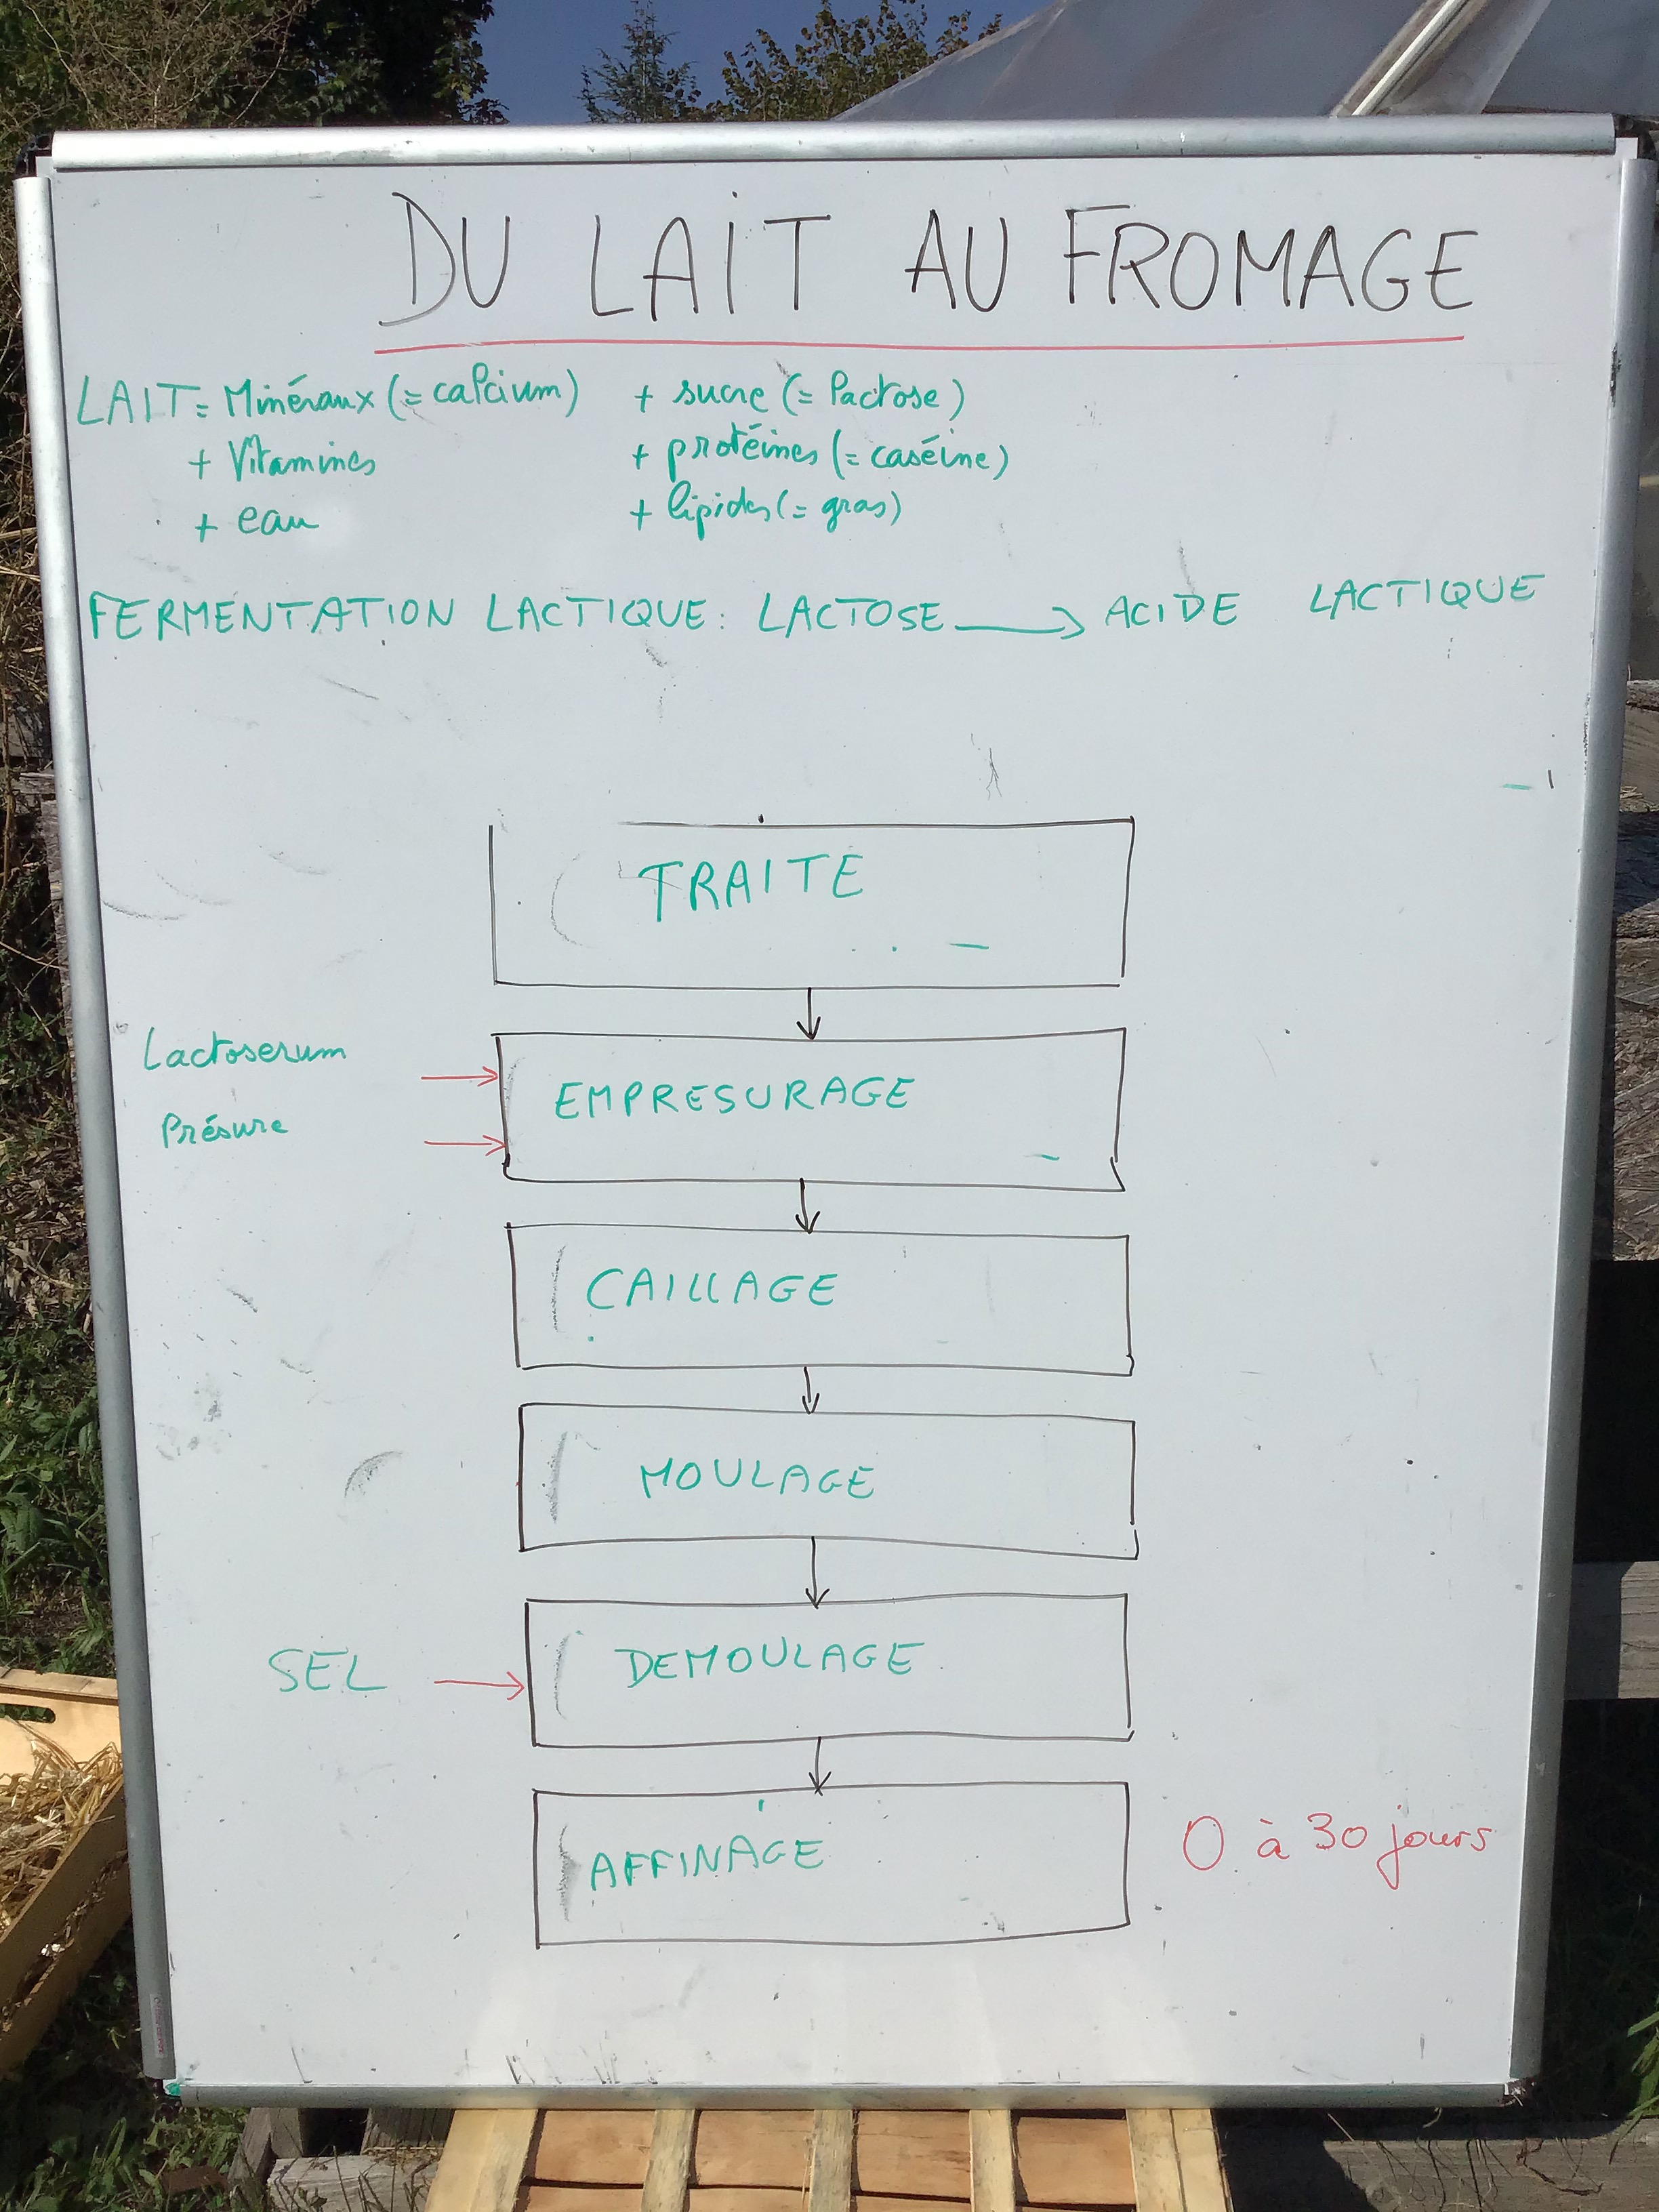 DU LAIT AU FROMAGE
LAIT = Minéraux (= calcium) + sucre (= lactose)
+ Vitamines + protéines (= caséine)
+ eau + lipides (= gras)
FERMENTATION LACTIQUE: LACTOSE → ACIDE LACTIQUE
TRAITE
Lactoserum
EMPRESURAGE
Présure
CAILLAGE
MOULAGE
SEL → DEMOULAGE
AFFINAGE 0 à 30 jours